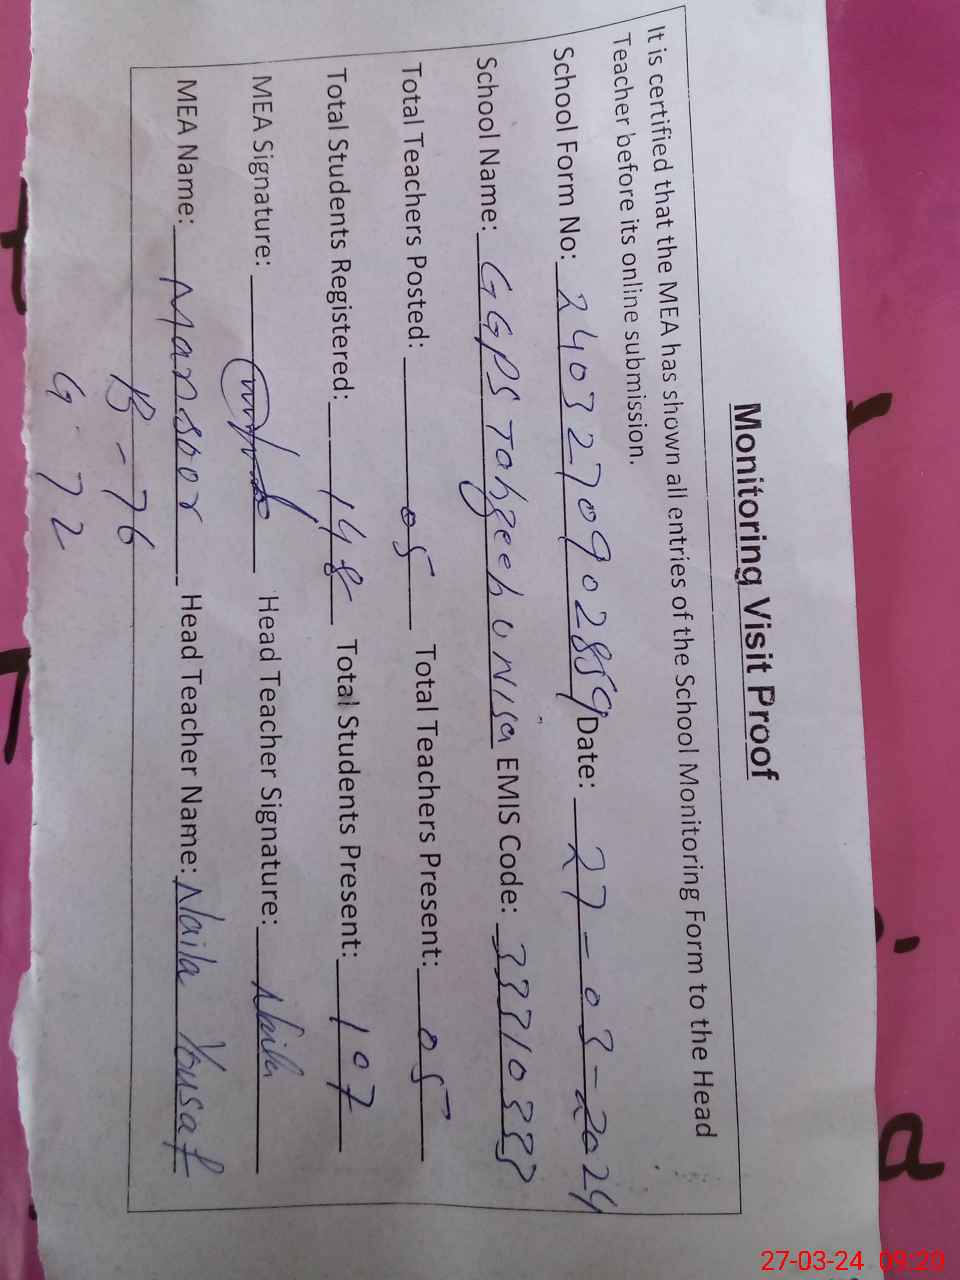 Monitoring Visit Proof
It is certified that the MEA has shown all entries of the School Monitoring Form to the Head
Teacher before its online submission.
School Form No: 2403270902889 Date: 27-03-2024
School Name: GGPS Tahzeebunisa EMIS Code:
Total Teachers Posted: 05 Total Teachers Present: 05
Total Students Registered: 148 Total Students Present: 107
MEA Signature: Head Teacher Signature: Naila
MEA Name: Mansoor Head Teacher Name: Naila Yousaf
B - 76
G. 72
27-03-24 09:20